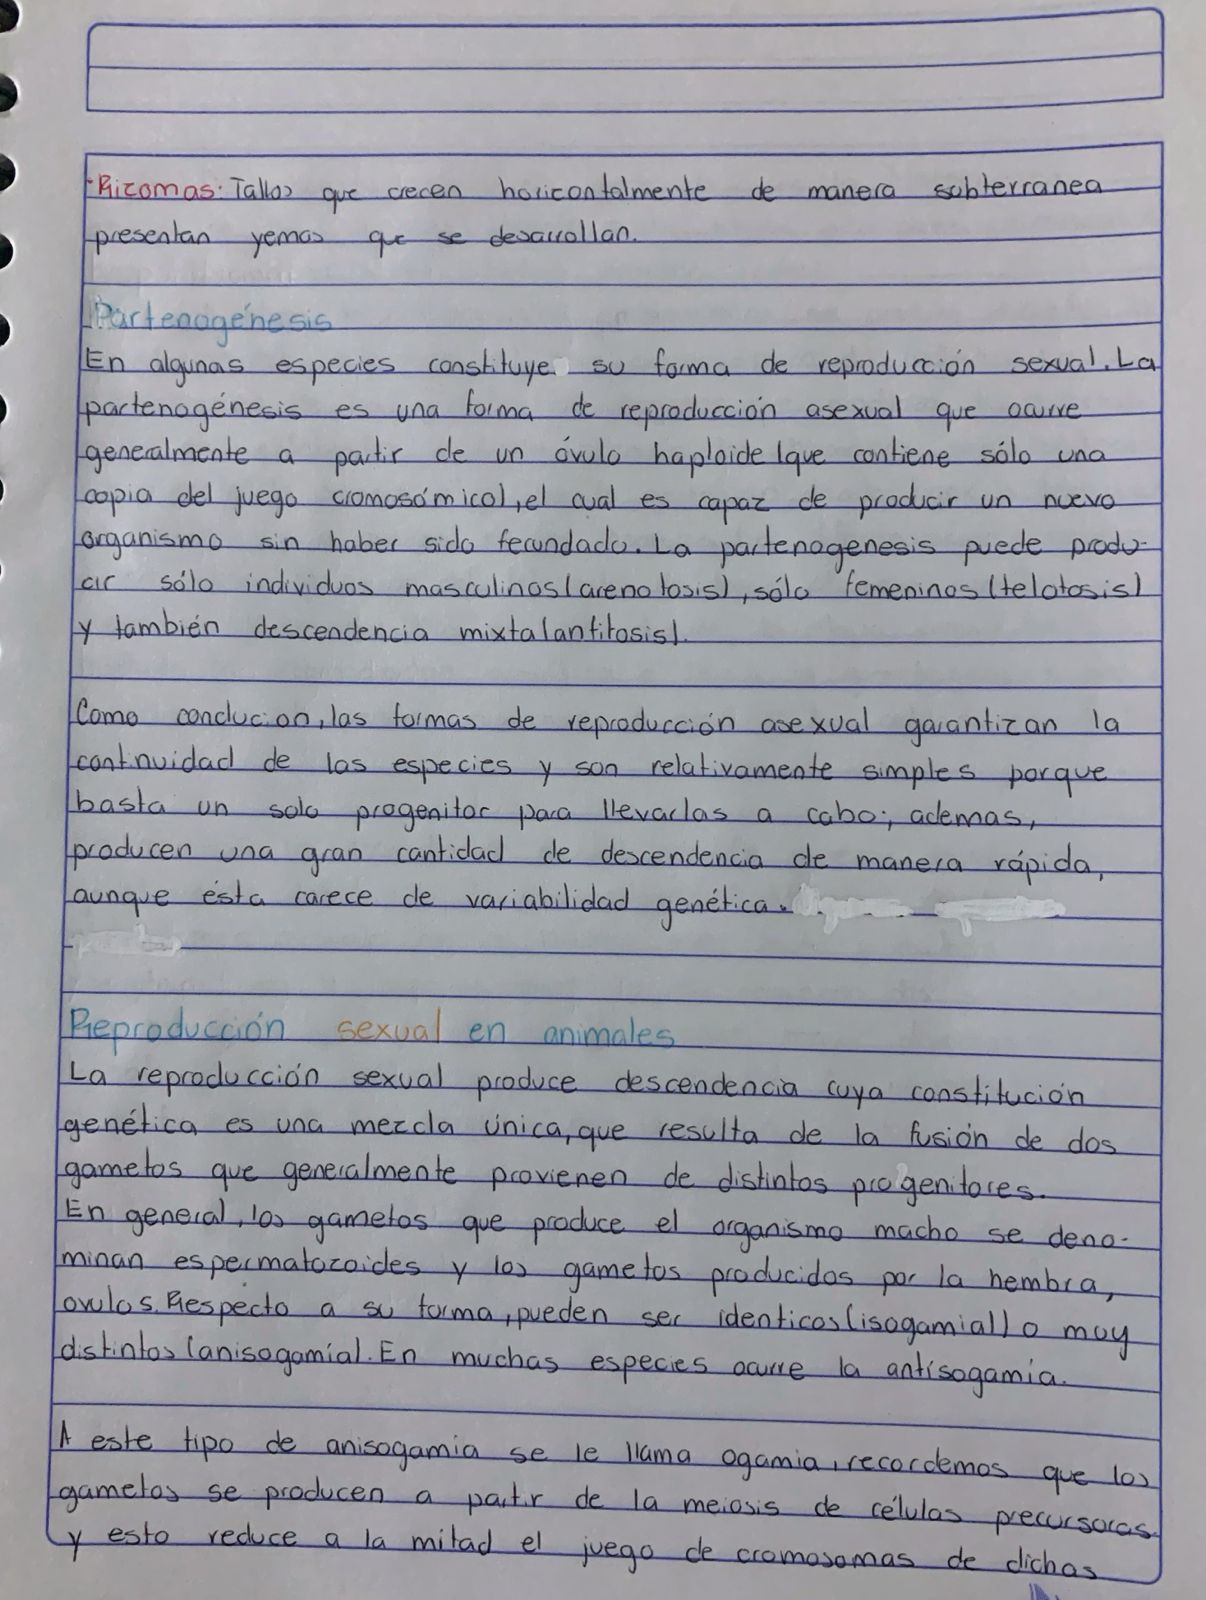 ·Rizomas: Tallos que crecen horicontalmente de manera subterranea
presentan yemas que se desarrollan.
Partenogénesis
En algunas especies constituye su forma de reproducción sexual. La
partenogénesis es una forma de reproducción asexual que ocurre
generalmente a partir de un óvulo haploide (que contiene sólo una
copia del juego cromosómico), el cual es capaz de producir un nuevo
organismo sin haber sido fecundado. La partenogenesis puede produ-
cir sólo individuos masculinos (arenotosis), sólo femeninos (telotosis)
y también descendencia mixta (antitosis).
Como conclucion, las formas de reproducción asexual garantizan la
continuidad de las especies y son relativamente simples porque
basta un solo progenitor para llevarlas a cabo; ademas,
producen una gran cantidad de descendencia de manera rápida,
aunque ésta carece de variabilidad genética.
Reproducción sexual en animales
La reproducción sexual produce descendencia cuya constitución
genética es una mezcla única, que resulta de la fusión de dos
gametos que generalmente provienen de distintos progenitores.
En general, los gametos que produce el organismo macho se deno-
minan espermatozoides y los gametos producidos por la hembra,
ovulos. Respecto a su forma, pueden ser identicos (isogamia) o muy
distintos (anisogamia). En muchas especies ocurre la antisogamia.
A este tipo de anisogamia se le llama ogamia, recordemos que los
gametos se producen a partir de la meiosis de células precursoras
y esto reduce a la mitad el juego de cromosomas de dichas